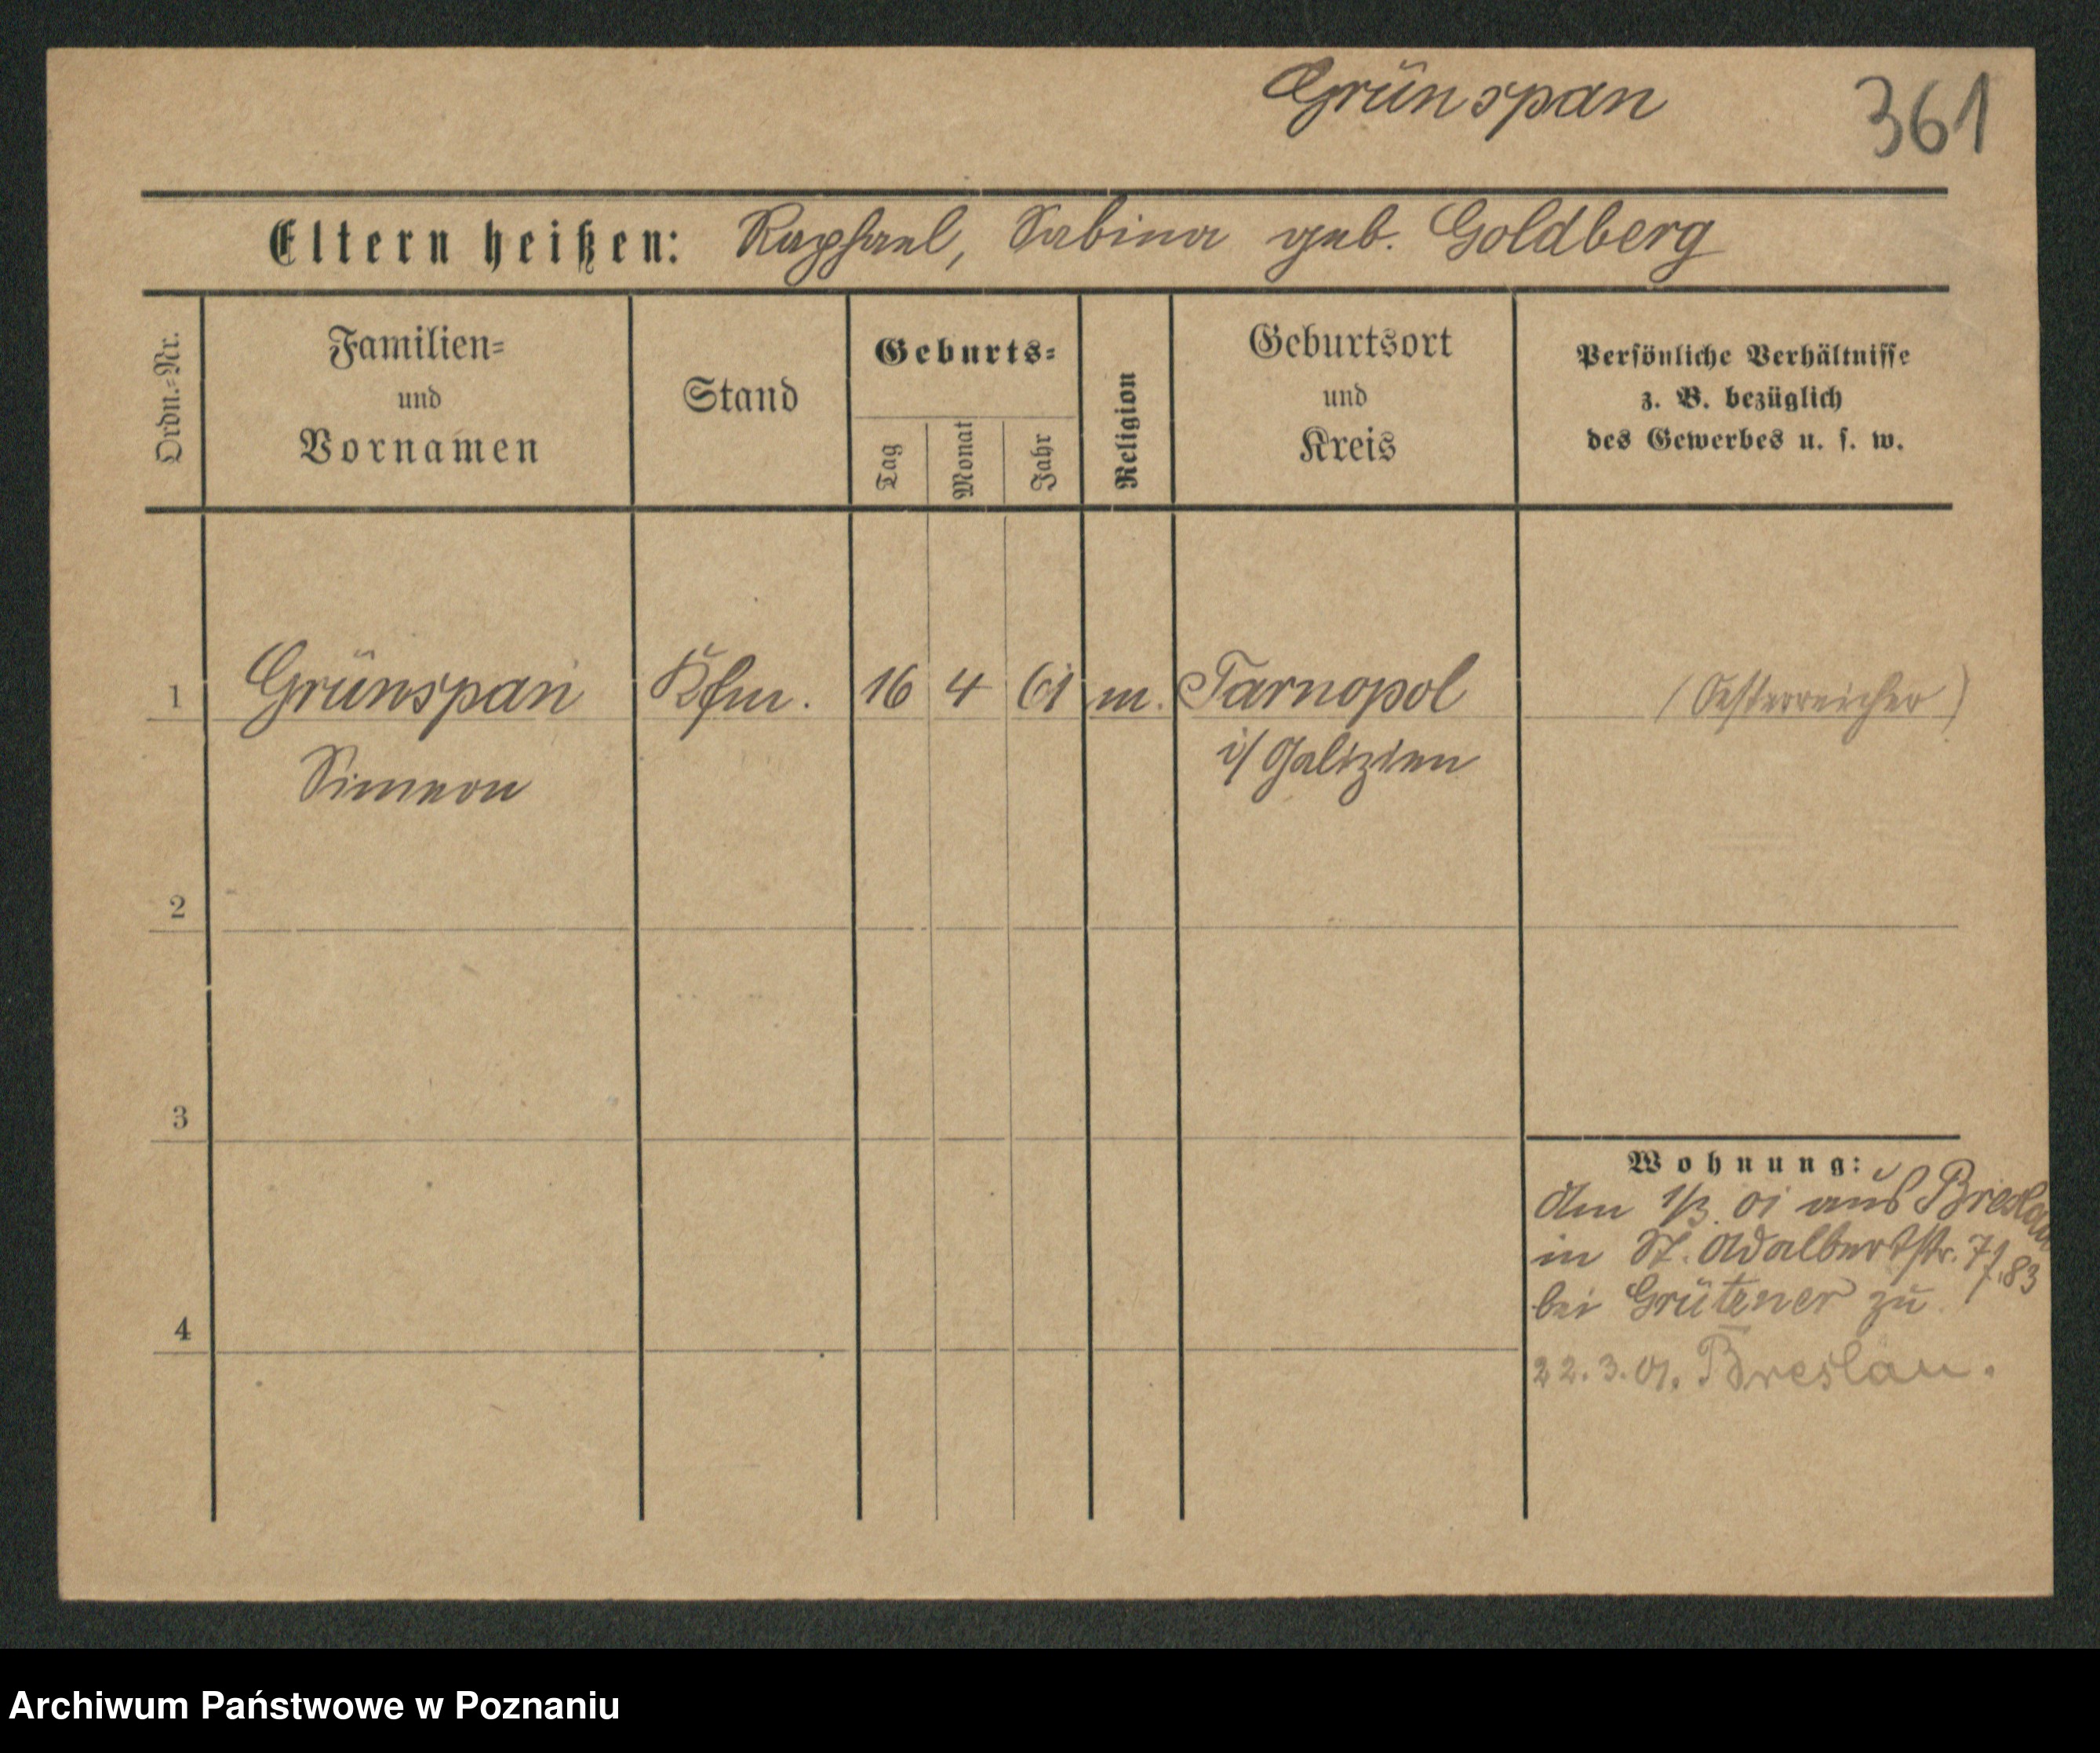 Grünspan
361
Eltern heißen: Raphael, Sabina geb. Goldberg
Ordn.-Nr.
Familien-
und
Vornamen
Stand
Geburts-
Tag
Monat
Jahr
Religion
Geburtsort
und
Kreis
Persönliche Verhältnisse
z. B. bezüglich
des Gewerbes u. s. w.
1 Grünspan Kfm. 16 4 61 m. Tarnopol (Oesterreicher)
Simeon i/ Galizien
2
3
Wohnung:
Am 1/3. 01 aus Breslau
in St. Adalbertstr. 7
bei Grütener zu
4
22.3.01. Breslau.
Archiwum Państwowe w Poznaniu